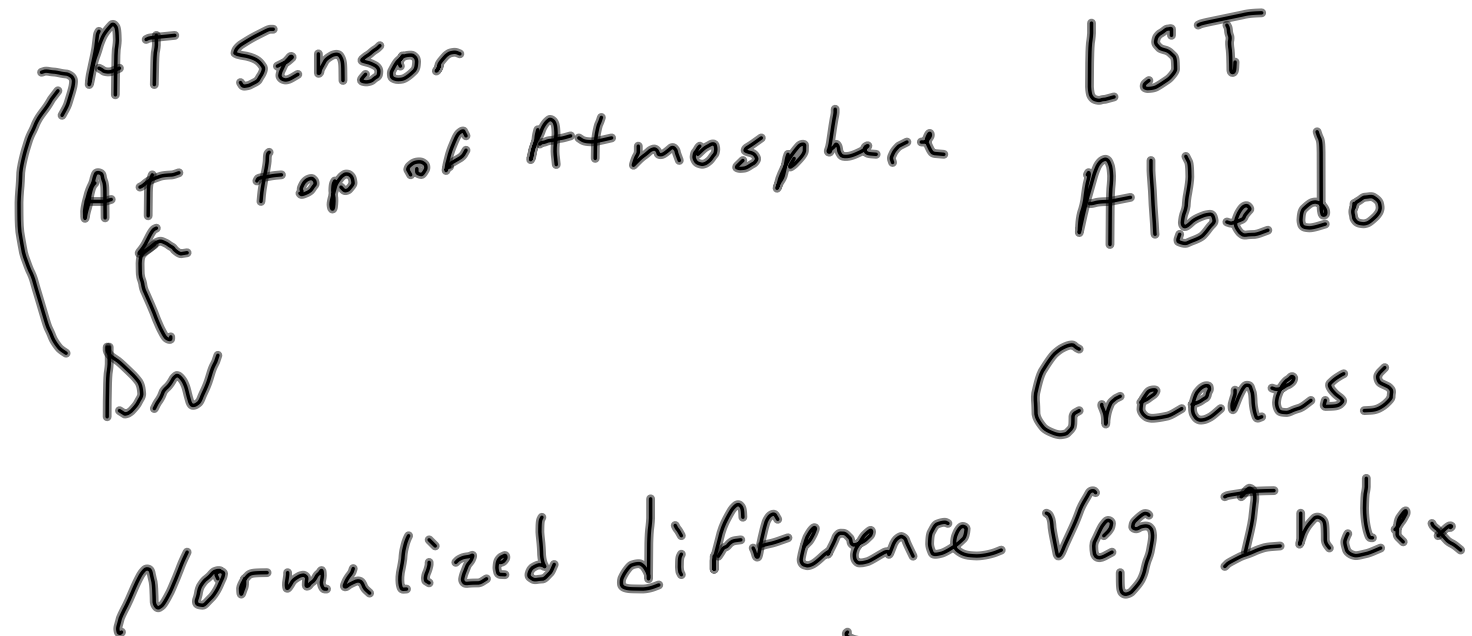 AT Sensor
AT top of Atmosphere
DN
LST
Albedo
Greeness
Normalized difference Veg Index